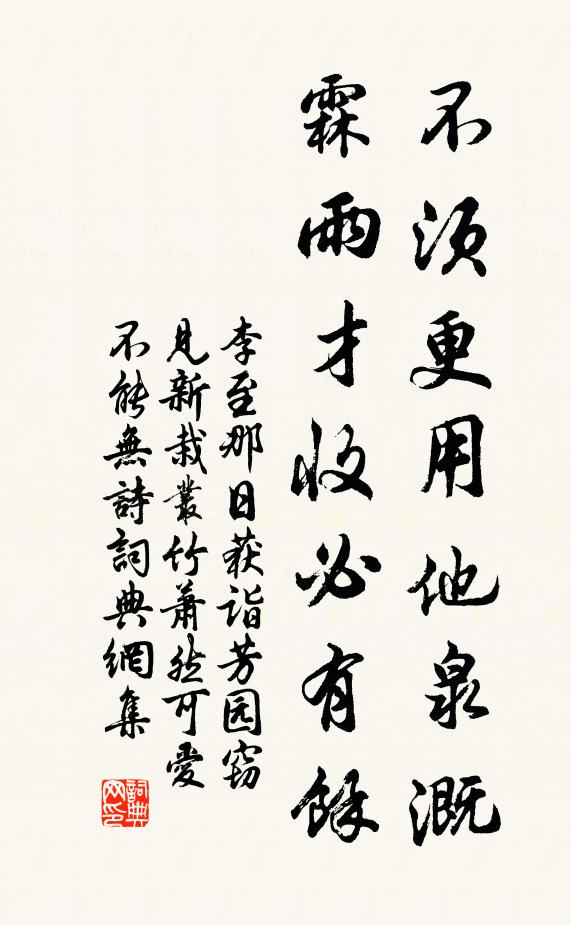 不須更用他泉溉
霖雨才收必有餘
李至那日获詣芳园窃
見新栽叢竹蕭然可愛
不能無詩詞典網集
詞典网印